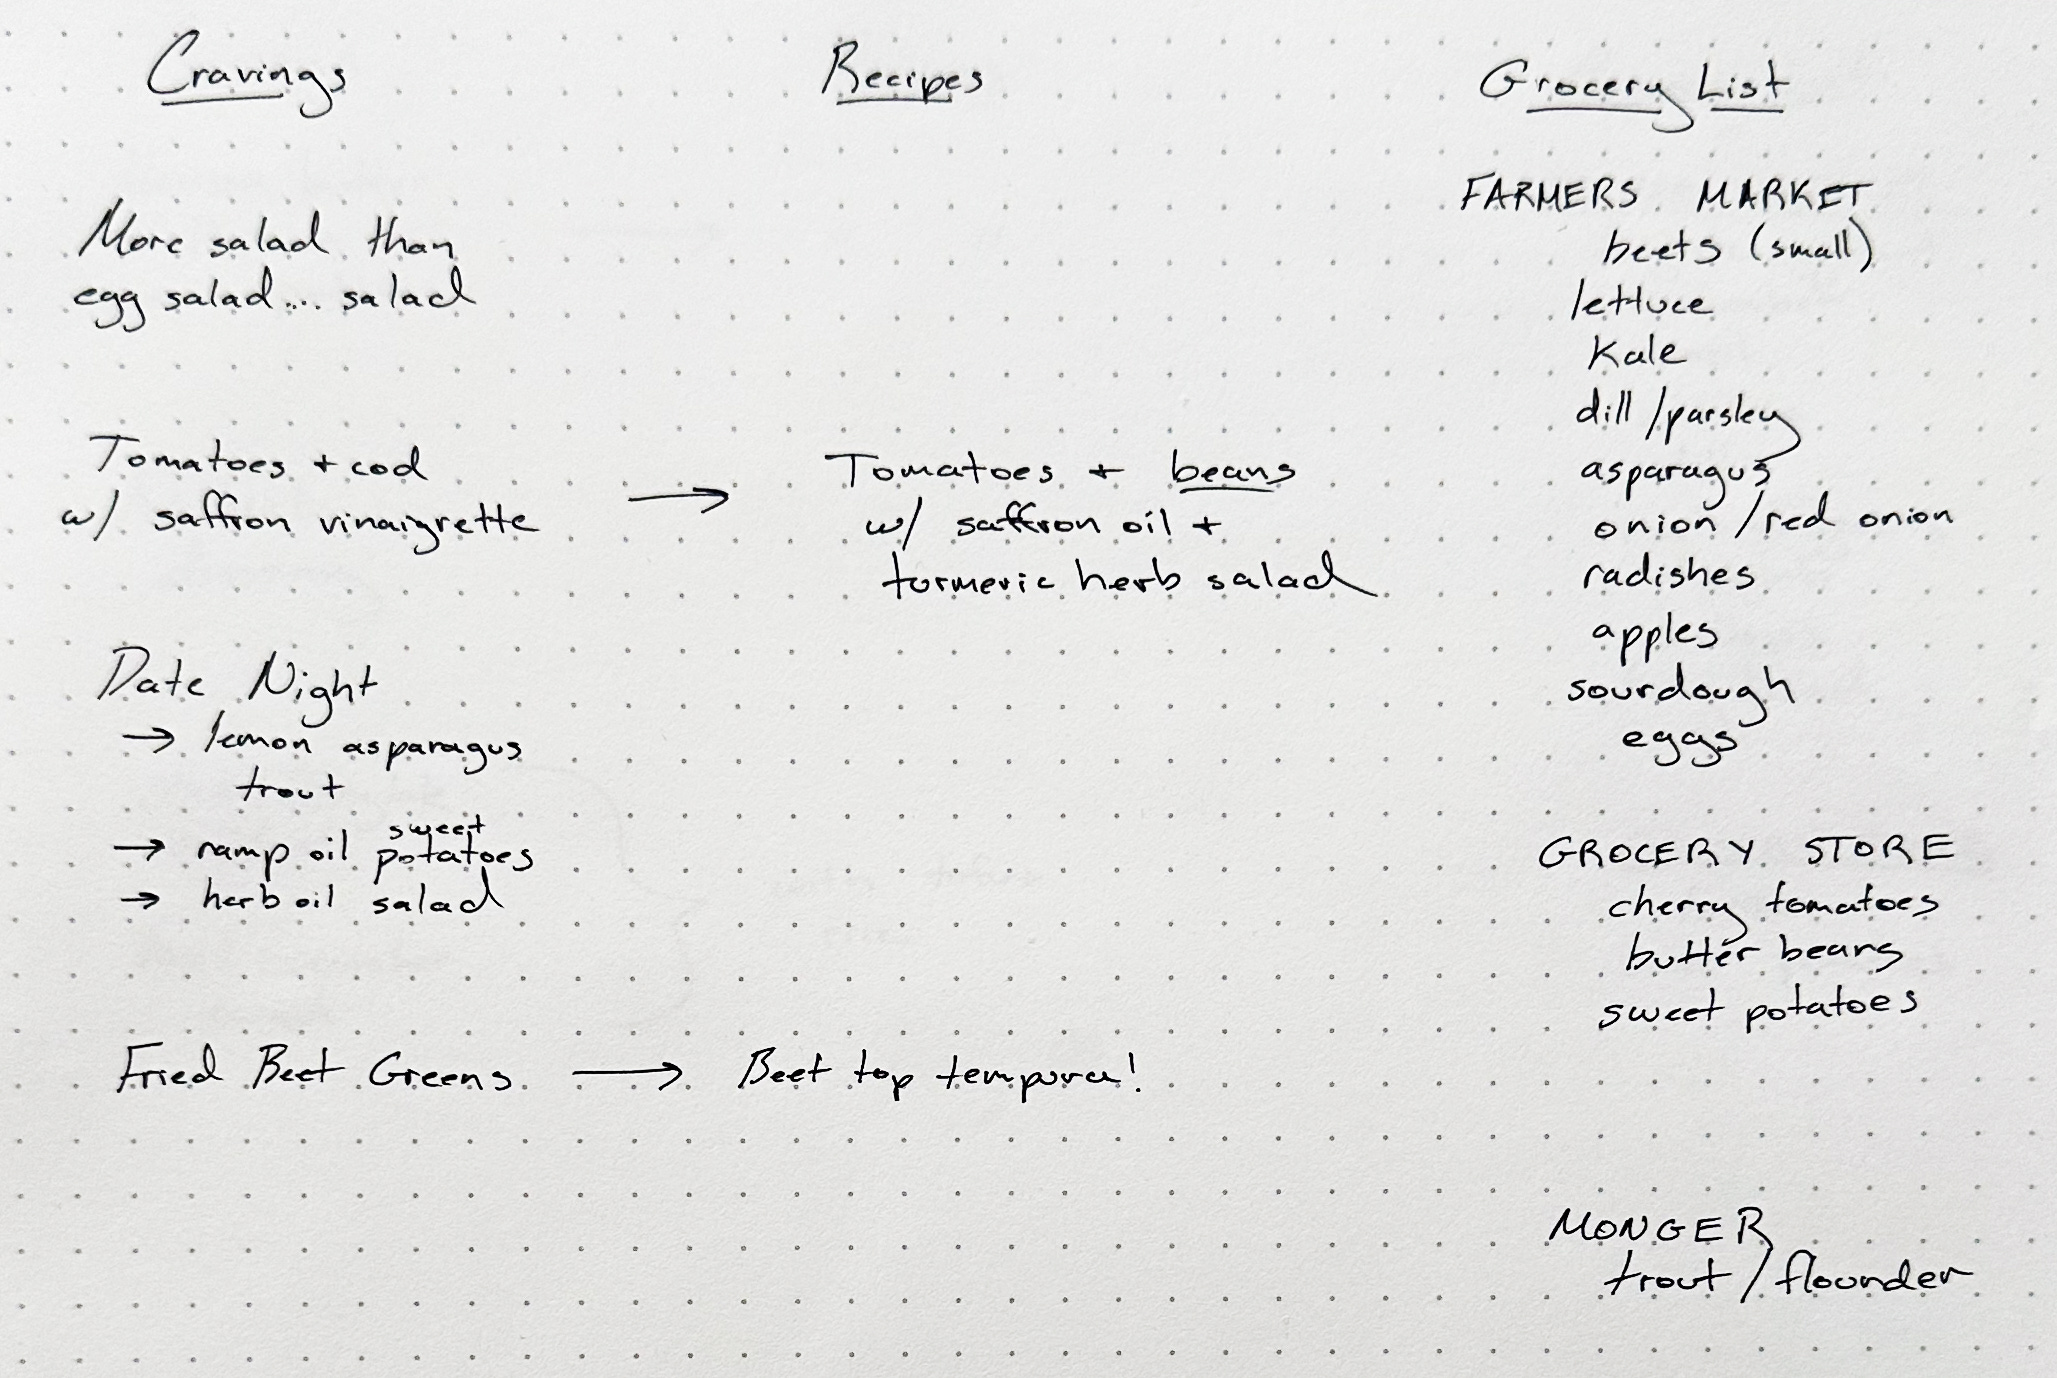 Cravings
Recipes
Grocery List
More salad than
egg salad... salad
Tomatoes + cod
w/ saffron vinaigrette
Tomatoes + beans
w/ saffron oil +
turmeric herb salad
Date Night
→ lemon asparagus
trout
sweet
→ ramp oil potatoes
→ herb oil salad
Fried Beet Greens
Beet top tempura!
FARMERS MARKET
beets (small)
lettuce
kale
dill / parsley
asparagus
onion / red onion
radishes
apples
sourdough
eggs
GROCERY STORE
cherry tomatoes
butter beans
sweet potatoes
MONGER
trout / flounder